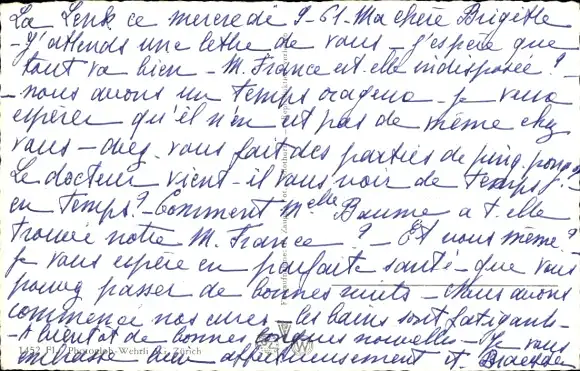 La Lenk ce mercredi 9-61- Ma chère Brigitte
- J'attends une lettre de vous - j'espère que
tout va bien - M. France est-elle indisposée ? -
- nous avons un temps orageux - je veux
espérer qu'il n'en est pas de même chez
vous - avez-vous fait des parties de ping-pong
Le docteur vient-il vous voir de temps
en temps ? - Comment Melle Baume a t-elle
trouvé notre M. France ? - Et vous même ?
je vous espère en parfaite santé - que vous
pouvez passer de bonnes nuits - Nous avons
commencé nos cures - les bains sont fatigants -
- A bientôt de bonnes longues nouvelles - Je vous
embrasse bien affectueusement A.
1452 Fl. Photoglob-Wehrli A.G. Zürich